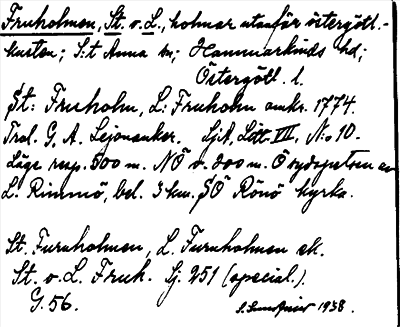 Fruholmen, St. o. L., holmar utanför östergötl.-
kusten; S:t Anna sn; Hammarkinds hd;
Östergötl. l.
St: Fruholm, L: Fruholm omkr. 1774.
Trol. G. A. Lejonanker. SjA, Litt. VII, N:o 10.
Läge resp. 500 m. NÖ o. 800 m. Ö sydspetsen av
L. Rimmö, bel. 3 km. SÖ Rönö kyrka.
St. Furuholmen, L. Furuholmen ek.
St. o. L. Fruh. Sj. 251 (special.).
G. 56.
1938.